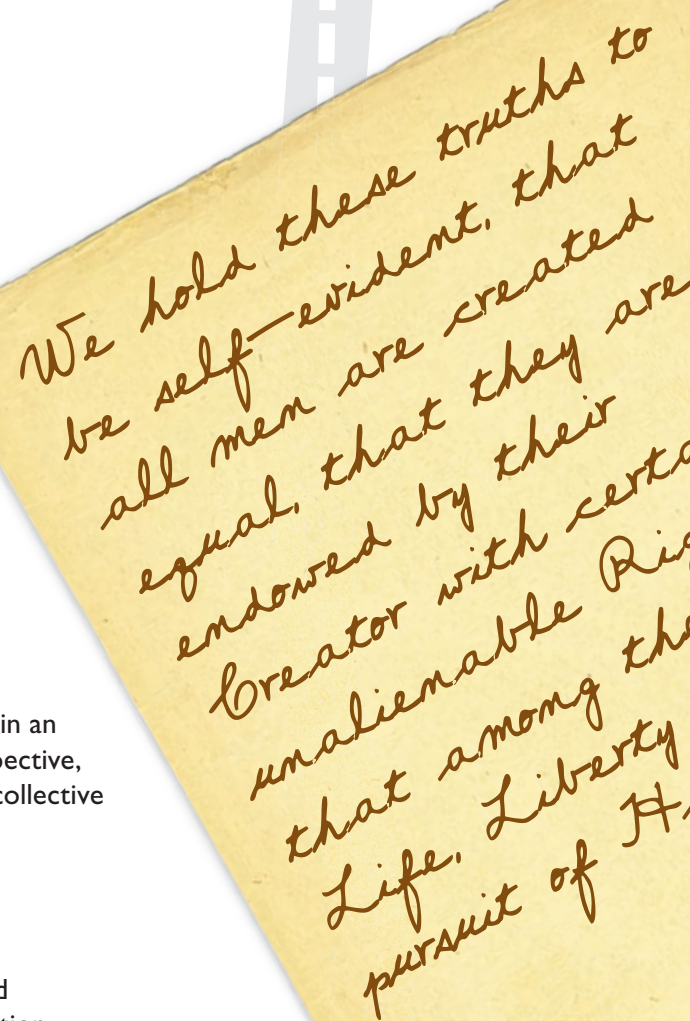 We hold these truths to
be self-evident, that
all men are created
equal, that they are
endowed by their
Creator with certa
unalienable Rig
that among the
Life, Liberty
pursuit of H
in an
pective,
collective
d